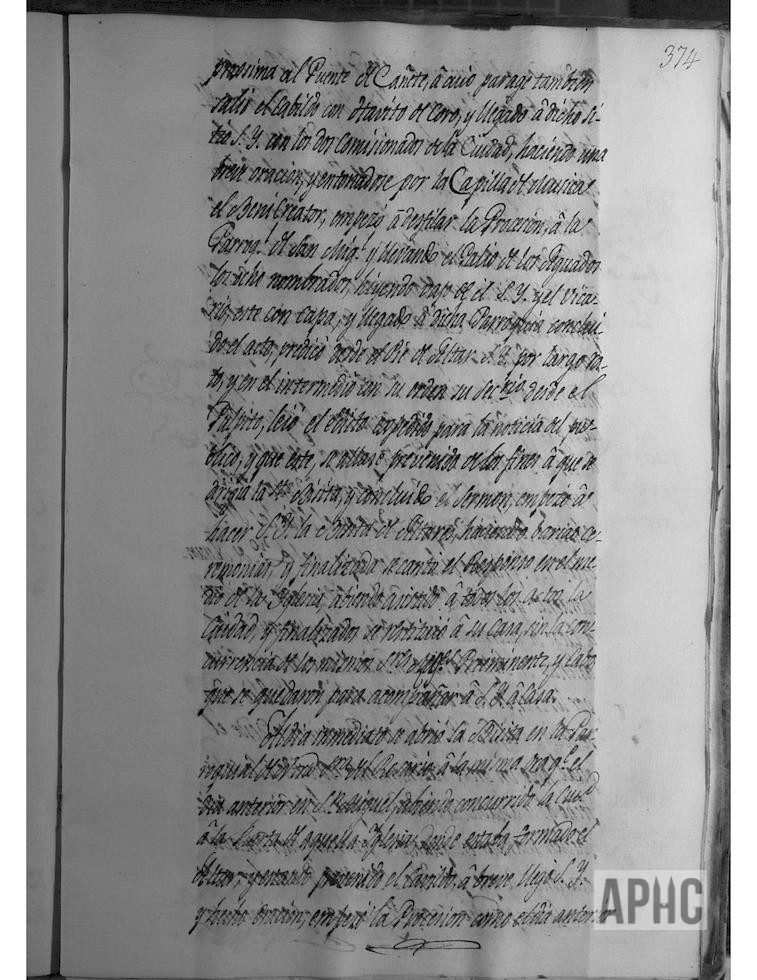 374
procsima al Puente de Cañete, â cuio parage tambien
salió el Cabildo con Havito de Coro, y llegado â dicho si-
tio S. Y. con los dos Comisionados de la Ciudad, haciendo una
breve oracion, y entonadose por la Capilla de Musica
el Beni Creator, empezó â desfilar la Procesion, â la
Parroql. de San Migl. y llevando el Palio de los Aguador
los nombrados, hiyendo vajo de el S. Y. y el Vica-
rio, este con Capa, y llegado â dicha Parroquia conclui-
do el acto, predicó desde el Pie de Altar S. Y. por largo ra-
to, y en el intermedio con su orden su Secrio. desde el
Pulpito, leió el edicto expedido para la noticia del pu-
blico, y que este, se allase prevenido de los fines â que se
dirigia la Sta. Visita, y concluido el Sermon, empezó â
hacer S. Y. la Visita de Altares, haciendo barias ce-
remonias, y finalizada se cantó el Responso en el me-
dio de la Iglesia, abiendo asistido â todos los actos la
Ciudad, y finalizados se restituió â su Casa, sin la con-
currencia de los mismos Sres. Preminente, y Cabo
que se quedaron para acompañar â S. Y. â Casa.
El dia inmediato se abrió la Visita en la Par-
roquial de Ntra. Sra. del Rosario â la misma ora qe. el
dia anterior en S. Miguel, abiendo concurrido la Ciud.
â la Puerta de aquella Iglesia, donde estaba formado el
Altar, y estando prevenido el Cavildo, â breve llegó S. Y.
y hecho oracion, empezó la Procesion como el dia anterior
APHC